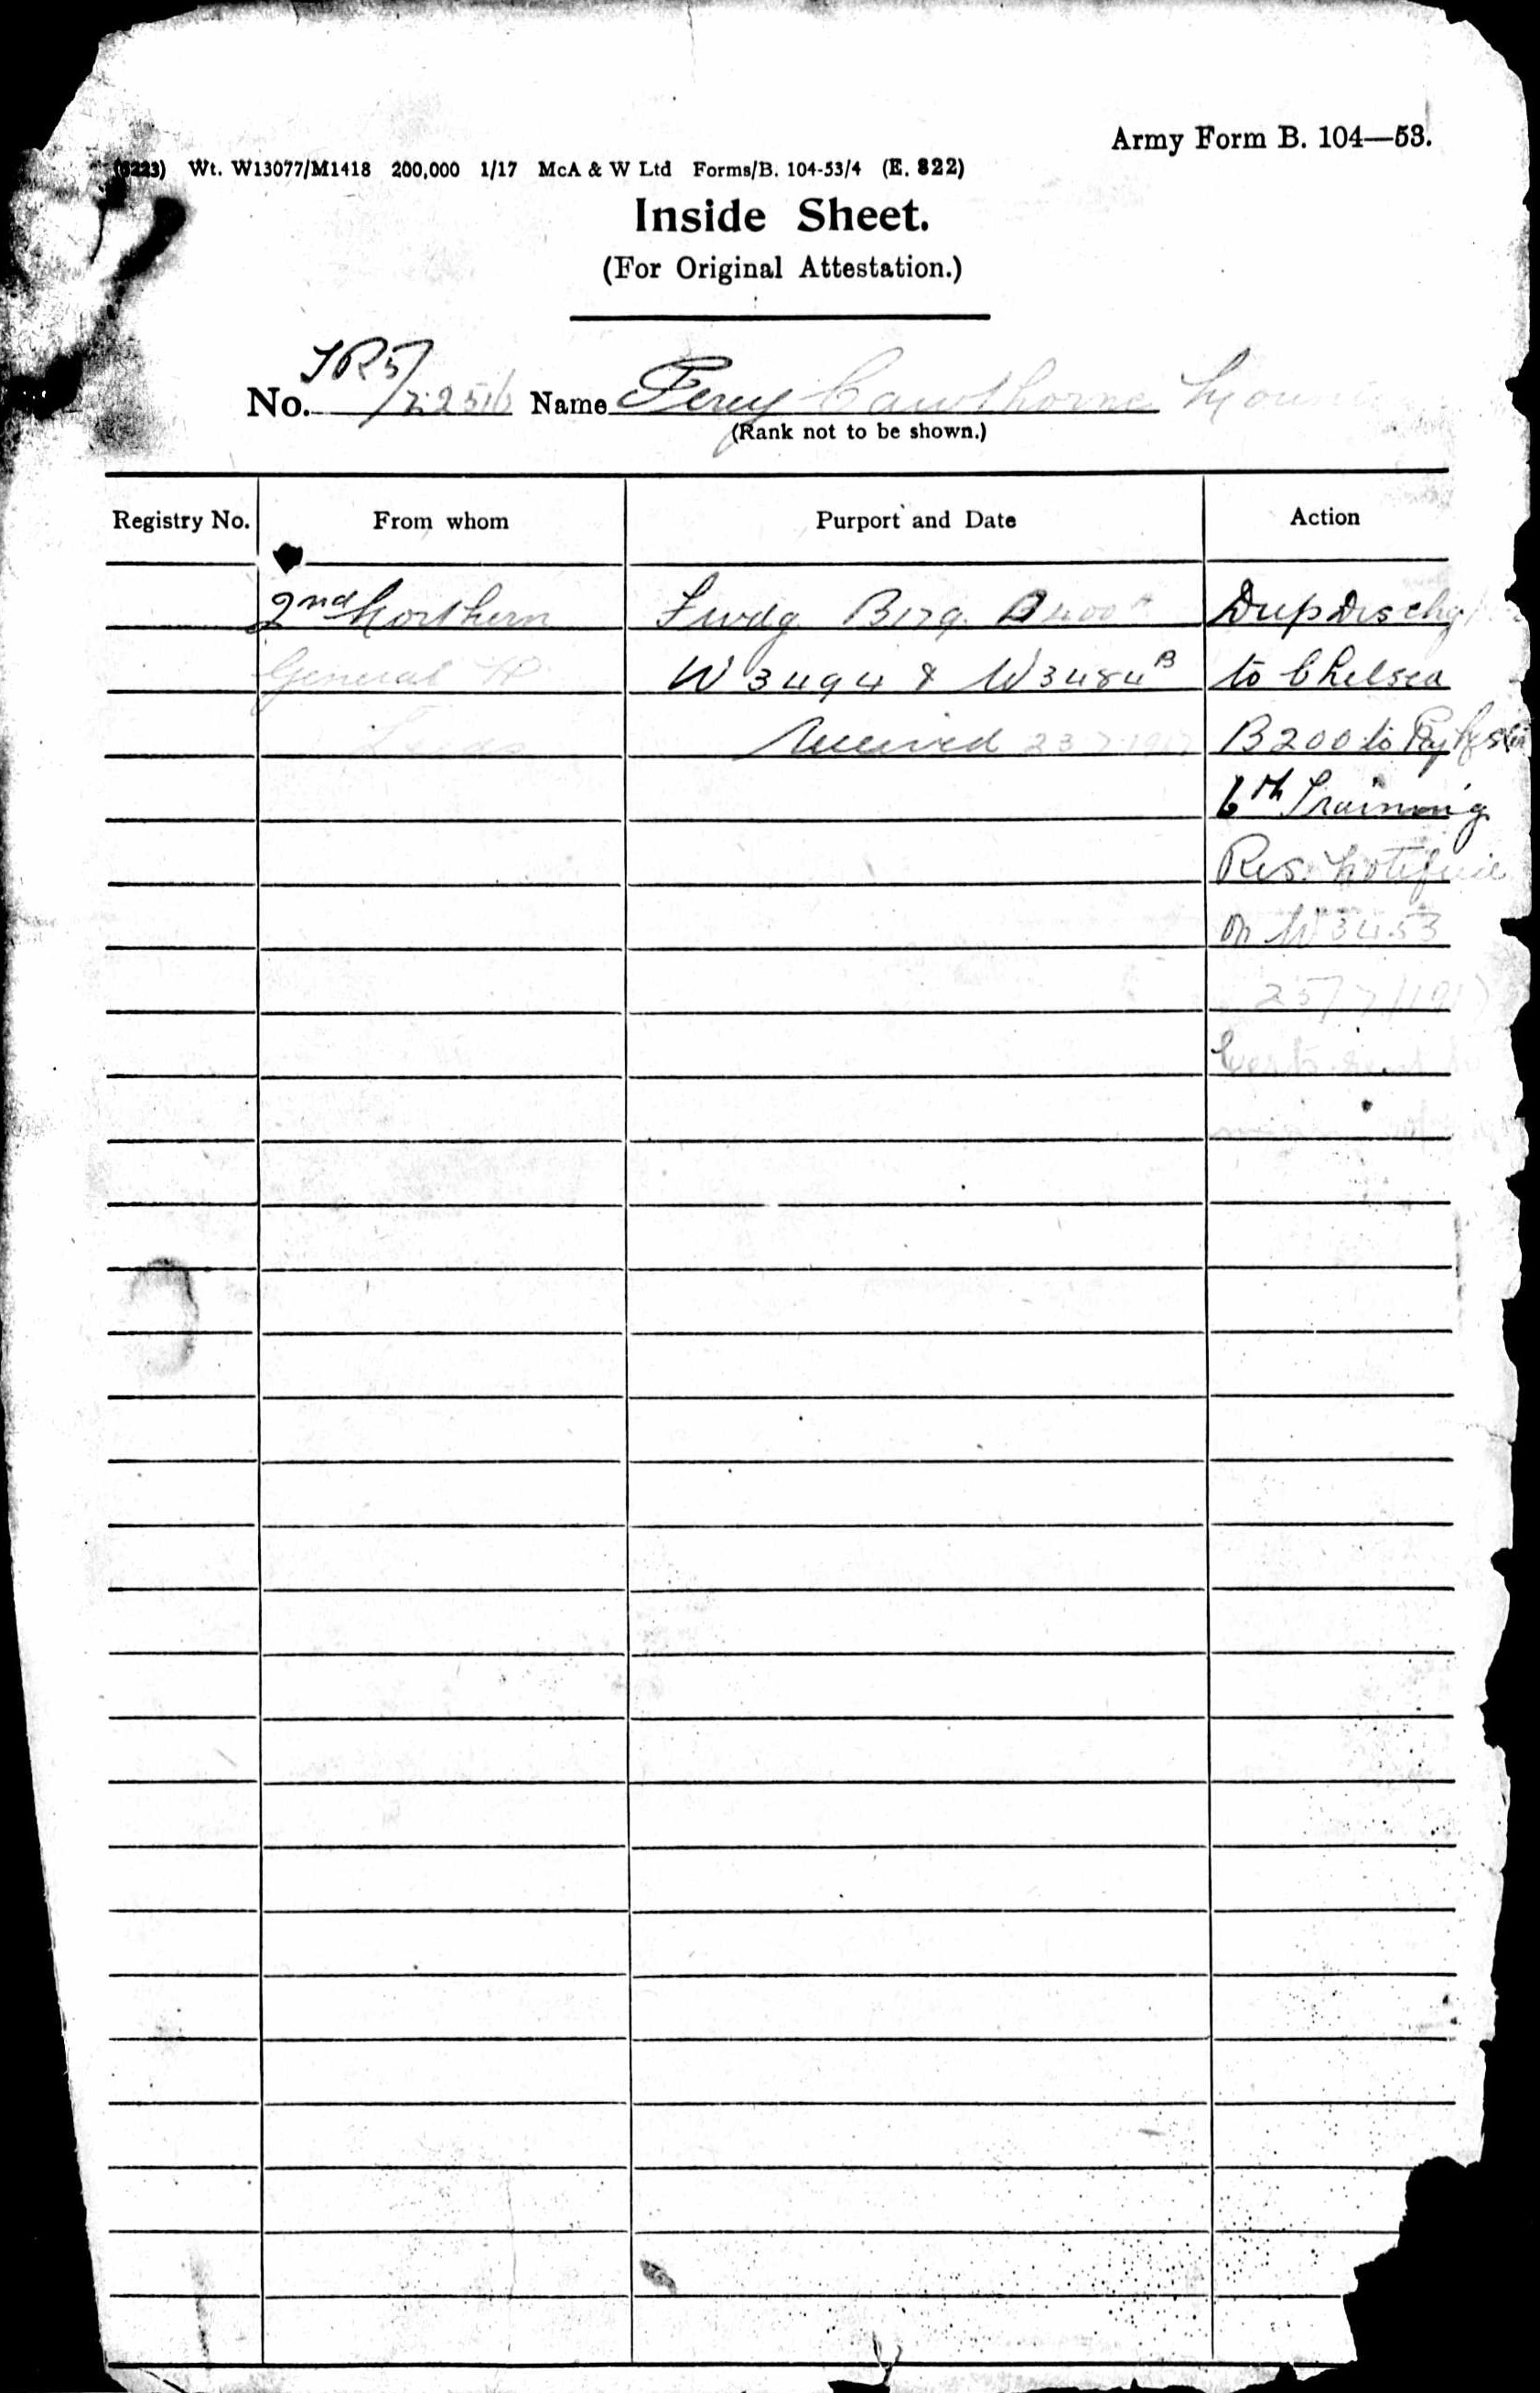 Army Form B. 104—53.
(6223) Wt. W13077/M1418 200,000 1/17 McA & W Ltd Forms/B. 104-53/4 (E. 822)
Inside Sheet.
(For Original Attestation.)
No. TR5/72256 Name Percy Cawthorne
(Rank not to be shown.)
Registry No. From whom Purport and Date Action
2nd Northern Fwdg B179 Dup Dischg
General H W3494 & W3484B to Chelsea
Leeds Received 23 7 1917 B200 to Pay
6th Training
Res.
on W3453
25/7/1917